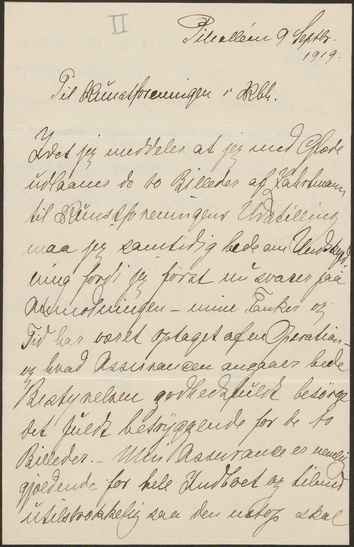 II
Pilealléen 9 Septbr.
1919.
Til Kunstforeningen i Kbh.
Idet jeg meddeler at jeg med Glæde
udlaaner de to Billeder af Zahrtmann
til Kunstforeningens Udstilling
maa jeg samtidig bede om Undskyld
ning fordi jeg først nu svarer paa
Anmodningen – mine Tanker og
Tid har været optaget af en Operation –
og hvad Assurancen angaaer bede
Bestyrelsen godhedsfuldt besørge
det fuldt betryggende for de to
Billeder. – Min Assurance er nemlig
gjældende for hele Indboet og tilmed
utilstrækkelig saa den netop skal